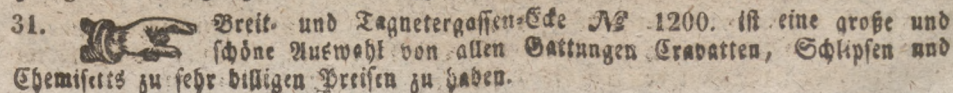 31. Breit- und Tagnetergassen-Ecke № 1200. ist eine große und
schöne Auswahl von allen Gattungen Cravatten, Schlipsen und
Chemisetts zu sehr billigen Preisen zu haben.